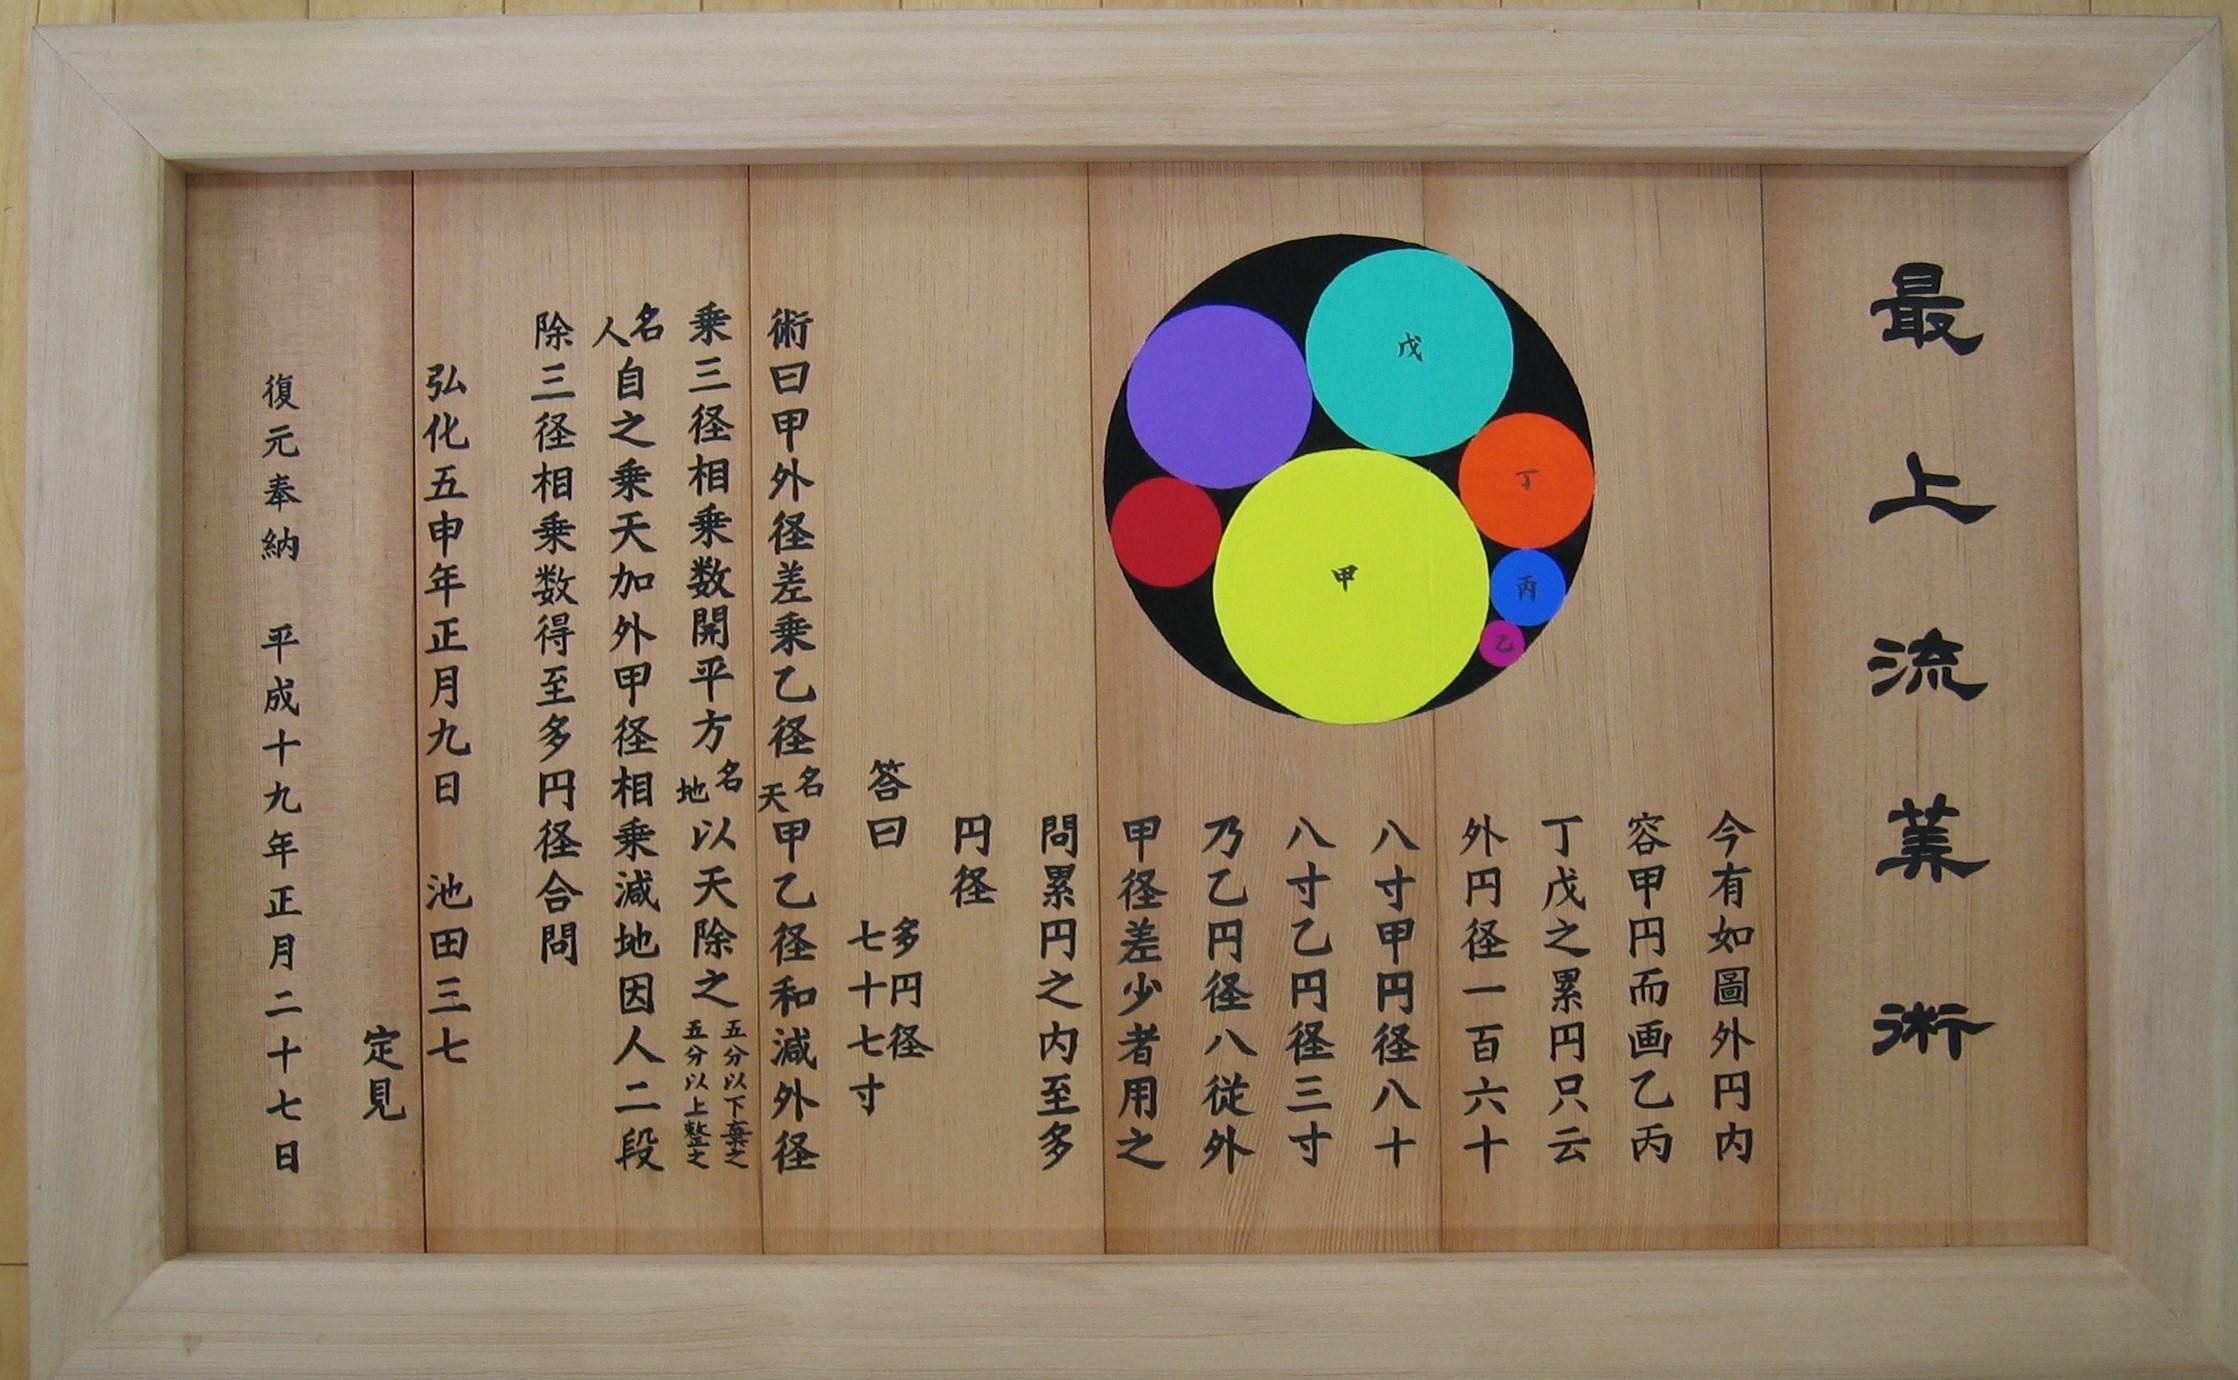 最上流筭術
今有如圖外円内
容甲円而画乙丙
丁戊之累円只云
外円径一百六十
八寸甲円径八十
八寸乙円径三寸
乃乙円径八従外
甲径差少者用之
問累円之内至多
円径
戊
丁
丙
乙
甲
答曰
多円径
七十七寸
術曰甲外径差乗乙径名天甲乙径和減外径
乗三径相乗数開平方名地以天除之五分以下棄之五分以上整之
名人自之乗天加外甲径相乗減地因人二段
除三径相乗数得至多円径合問
弘化五申年正月九日 池田三七
定見
復元奉納 平成十九年正月二十七日